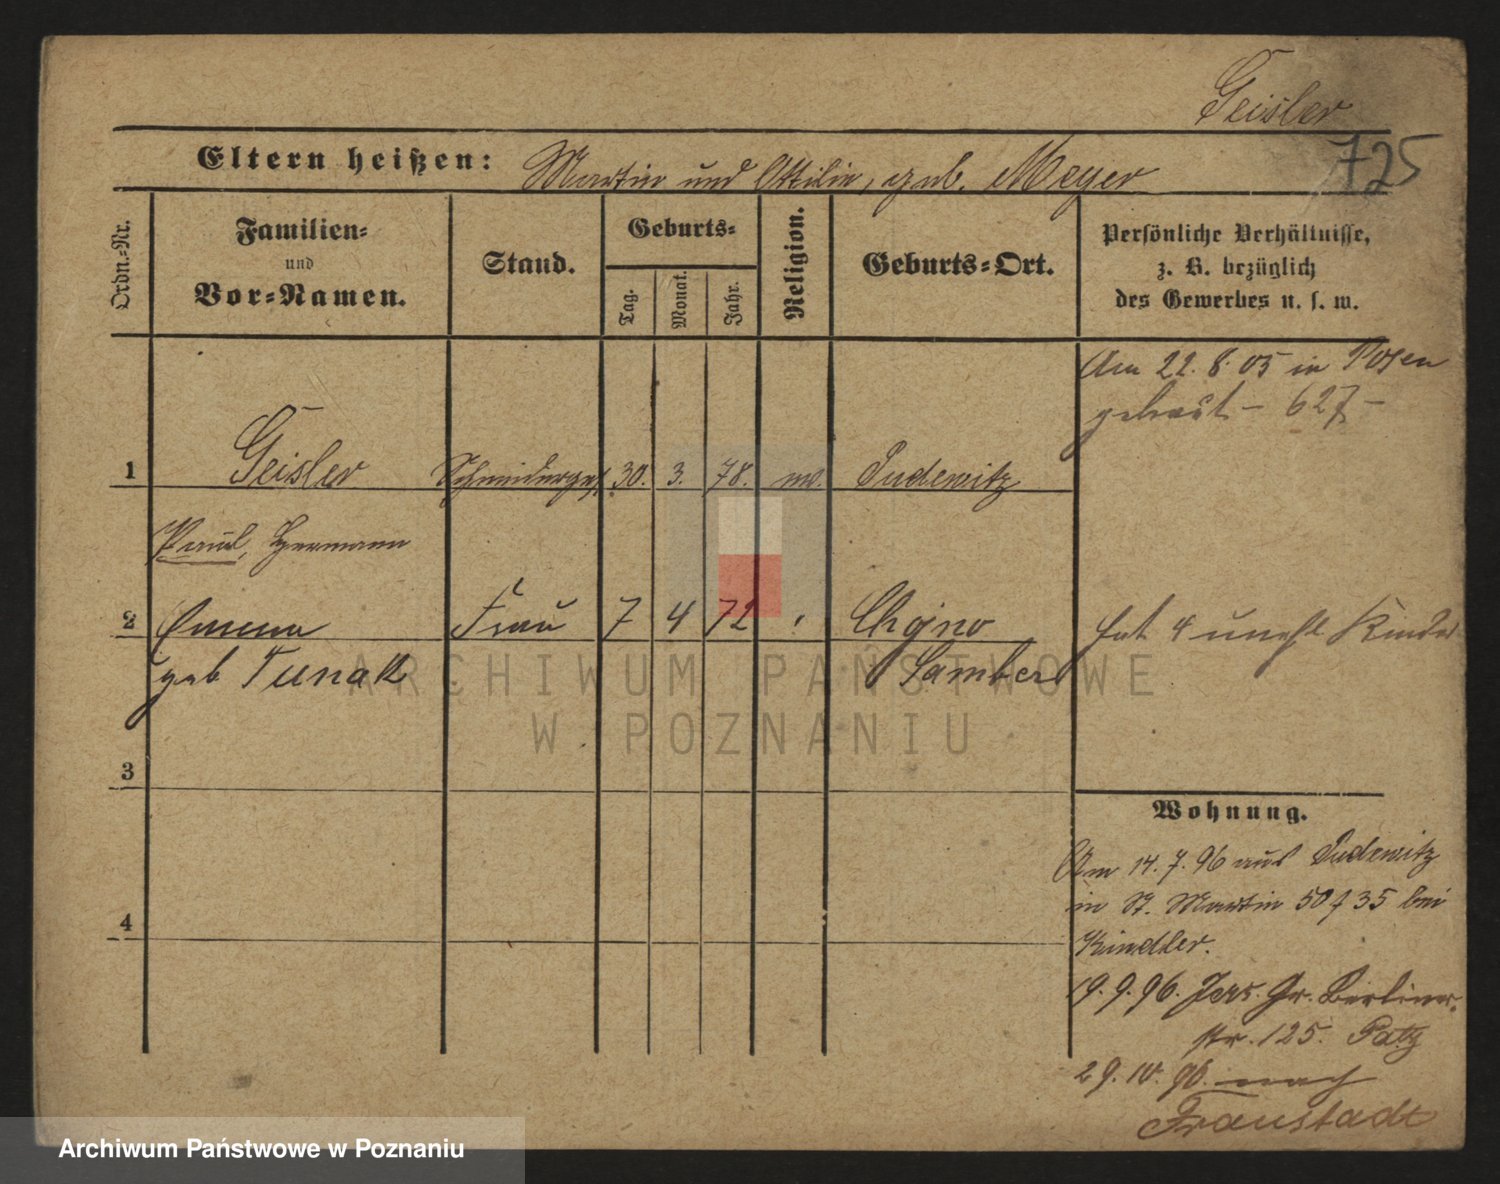 Geisler
725
Eltern heißen: Martin und Ottilie, geb. Meyer
Ordn.-Nr.
Familien-
und
Vor-Namen.
Stand.
Geburts-
Tag.
Monat.
Jahr.
Religion.
Geburts-Ort.
Persönliche Verhältnisse,
z. B. bezüglich
des Gewerbes u. s. w.
Am 22. 8. 05 in Posen
getraut – 627 –
1 Geisler Schneiderges. 30. 3. 78. ev. Pudewitz
Paul, Hermann
2 Emma Frau 7 4 72 Chojno hat 4 unehl Kinder
geb Tunak Samber
ARCHIWUM PAŃSTWOWE
W POZNANIU
3
4
Wohnung.
Am 14. 7. 96 aus Pudewitz
in St. Martin 50/35 bei
Kindler.
19. 9. 96. Jers. Gr. Berliner-
str. 125. Patz
29. 10. 96. nach
Fraustadt
Archiwum Państwowe w Poznaniu